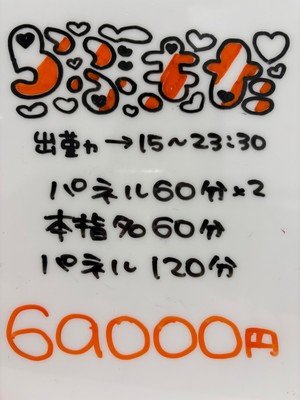 出勤→15～23:30
パネル60分×2
本指名60分
パネル120分
69000円